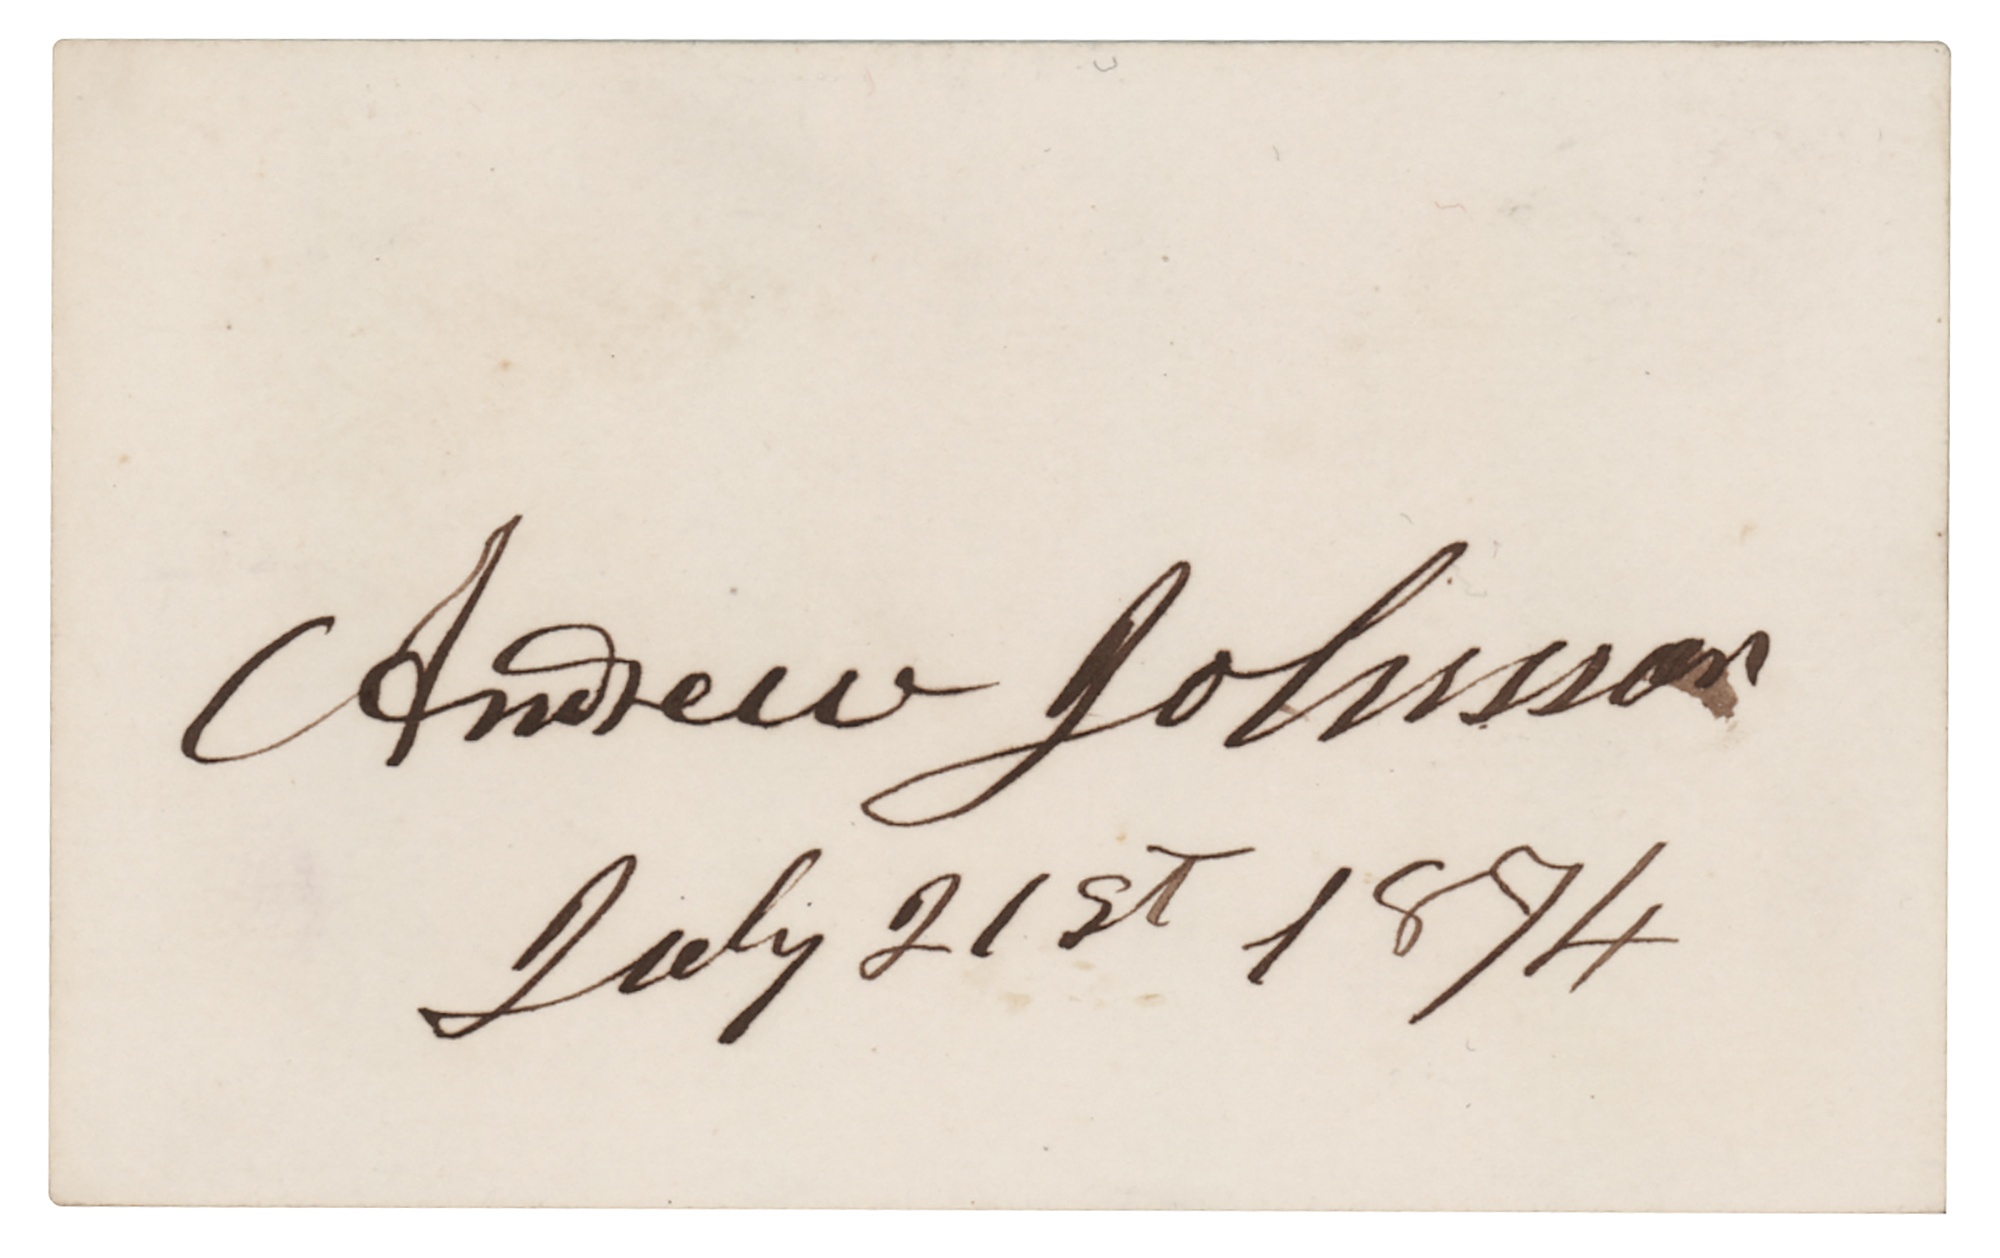 Andrew Johnson
July 21st 1874